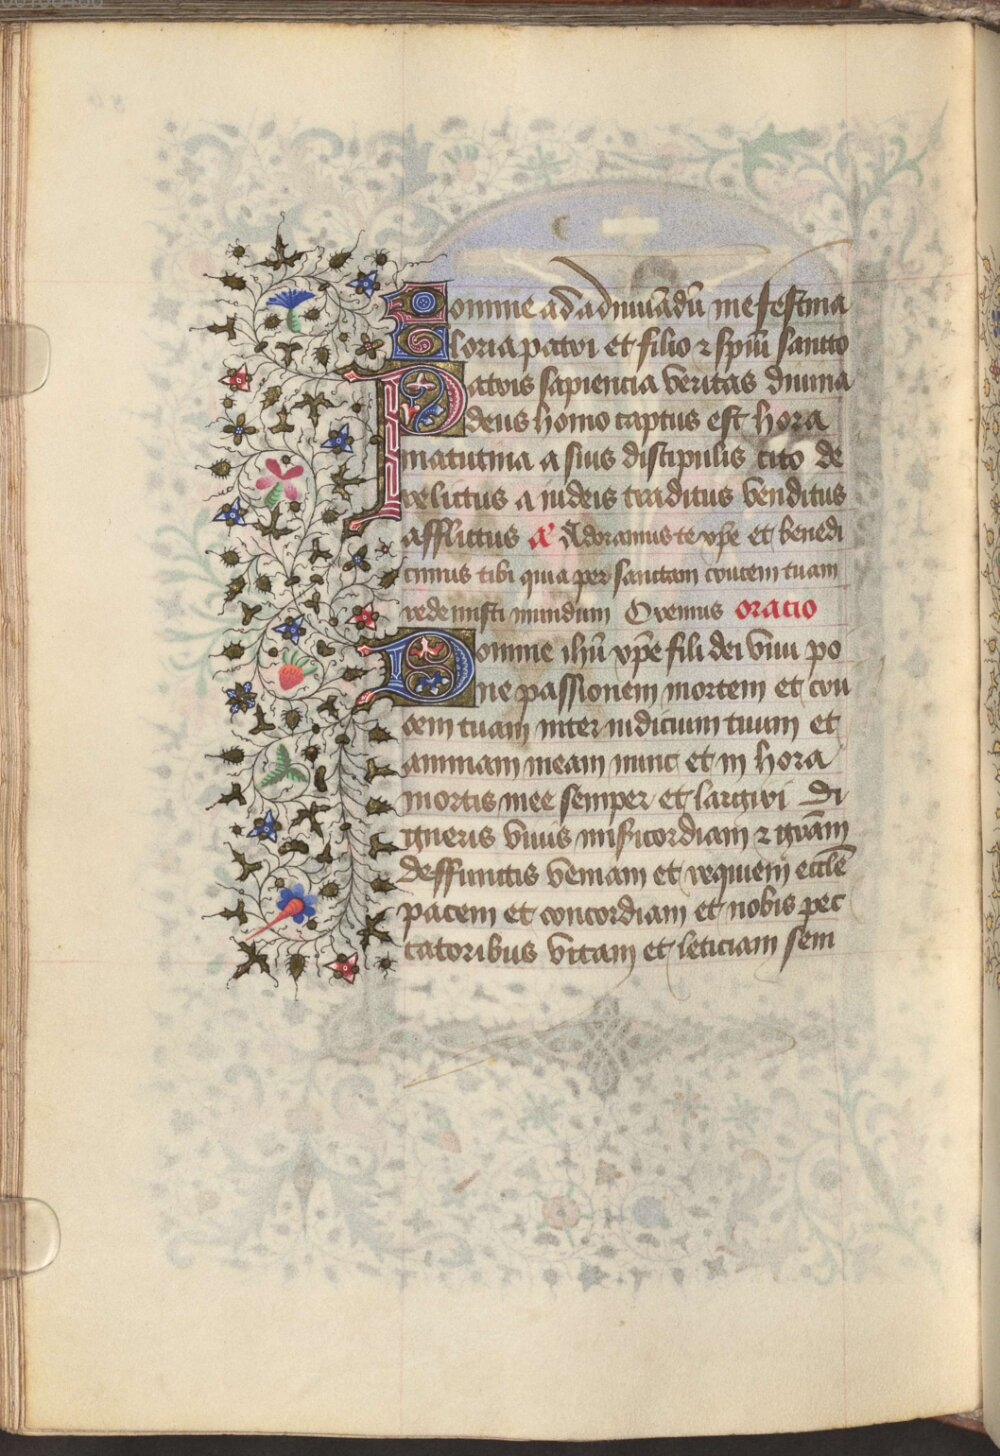 Domine ad adiuuādū me festina
Gloria patri et filio ⁊ spiū sancto
Patris sapiencia veritas diuina
deus homo captus est hora
matutina a suis discipulis cito de
relictus a iudeis traditus venditus
afflictus Adoramus te xp̄e et benedi
cimus tibi quia per sanctam crucem tuam
redemisti mundum Oremus oracio
Domine ihū xp̄e fili dei viui po
ne passionem mortem et cru
cem tuam inter iudicium tuum et
animam meam nunc et in hora
mortis mee semper et largiri Di
igneris viuis misīcordiam ⁊ grāam
deffunctis veniam et requiem eccle̅
pacem et concordiam et nobis pec
catoribus vitam et leticiam sem